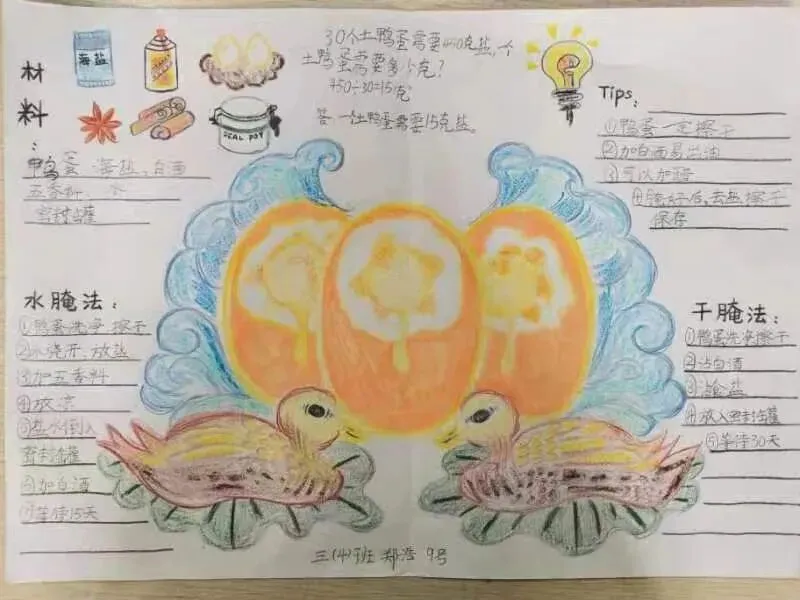 材料：
海盐
SEAL POT
鸭蛋 海盐、白酒
五香料、水
密封罐
30个土鸭蛋需要450克盐,一个
土鸭蛋需要多少克?
450÷30=15克
答 一土鸭蛋需要15克盐。
Tips:
①鸭蛋一定擦干
②加白酒易出油
③可以加
④腌好后,去盐擦干
保存
水腌法：
①鸭蛋洗净 擦干
②水烧开,放盐
③加五香料
④放凉
⑤盐水倒入
密封罐
⑥加白酒
⑦等待15天
干腌法：
①鸭蛋洗净擦干
②沾白酒
③滚食盐
④放入密封罐
⑤等待30天
三(4)班 郑 9号